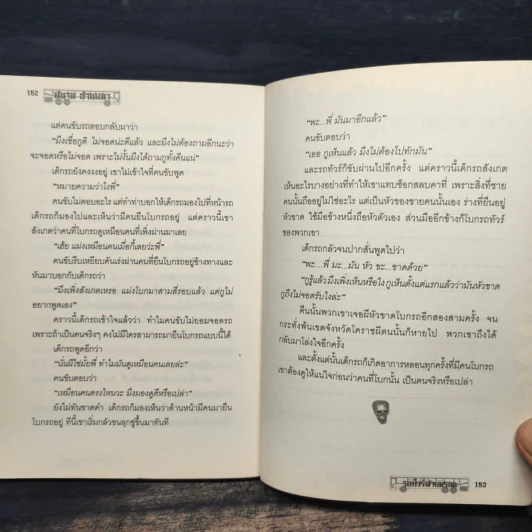 152
แต่คนขับรถตอบกลับมาว่า
"มึงเชื่อกูดิ ไม่จอดน่ะดีแล้ว และมึงไม่ต้องถามอีกนะว่า
จะจอดหรือไม่จอด เพราะไม่งั้นมึงได้ถามกูทั้งคืนแน่"
เด็กรถยังคงงงอยู่ เขาไม่เข้าใจที่คนขับพูด
"หมายความว่าไงพี่"
คนขับไม่ตอบอะไร แต่ทำท่าบอกให้เด็กรถมองไปที่หน้ารถ
เด็กรถก็มองไปและเห็นว่ามีคนยืนโบกรถอยู่ แต่คราวนี้เขา
สังเกตว่าคนที่โบกรถดูเหมือนคนที่เพิ่งผ่านมาเลย
"เฮ้ย แม่งเหมือนคนเมื่อกี้เลยว่ะพี่"
คนขับรีบเหยียบคันเร่งผ่านคนที่ยืนโบกรถอยู่ข้างทางและ
หันมาบอกกับเด็กรถว่า
"มึงเพิ่งสังเกตเหรอ แม่งโบกมาสามสี่รอบแล้ว แต่กูไม่
อยากพูดเอง"
คราวนี้เด็กรถเข้าใจแล้วว่า ทำไมคนขับไม่ยอมจอดรถ
เพราะถ้าเป็นคนจริงๆ คงไม่มีใครสามารถมายืนโบกรถแบบนี้ได้
เด็กรถพูดอีกว่า
"นั่นมีใช่มั้ยพี่ ทำไมมันดูเหมือนคนเลยล่ะ"
คนขับตอบว่า
"เหมือนคนตรงไหนวะ มึงมองดูดีหรือเปล่า"
ยังไม่ทันขาดคำ เด็กรถก็มองเห็นว่าด้านหน้ามีคนมายืน
โบกรถอยู่ ทีนี้เขาเริ่มกลัวจนขนลุกซู่ขึ้นมาทันที
"พะ...พี่ มันมาอีกแล้ว"
คนขับตอบว่า
"เออ กูเห็นแล้ว มึงไม่ต้องไปทักมัน"
และรถทัวร์ก็ขับผ่านไปอีกครั้ง แต่คราวนี้เด็กรถสังเกต
เห็นอะไรบางอย่างที่ทำให้เขาแทบช็อกสลบคาที่ เพราะสิ่งที่ชาย
คนนั้นถืออยู่ไม่ใช่อะไร แต่เป็นหัวของชายคนนั้นเอง ร่างที่ยืนอยู่
หัวขาด ใช้มือข้างหนึ่งถือหัวตัวเอง ส่วนมืออีกข้างก็โบกรถทัวร์
ของพวกเขา
เด็กรถกลัวจนปากสั่นพูดไปว่า
"พะ...พี่ มะ...มัน หัว ขะ...ขาดด้วย"
"กูรู้แล้ว มึงเพิ่งเห็นหรือไง กูเห็นตั้งแต่แรกแล้วว่ามันหัวขาด
กูถึงไม่จอดรับไงล่ะ"
คืนนั้นพวกเขาเจอผีหัวขาดโบกรถอีกสองสามครั้ง จน
กระทั่งพ้นเขตจังหวัดโคราชผีตนนั้นก็หายไป พวกเขาถึงได้
กลับมาโล่งใจอีกครั้ง
และตั้งแต่นั้นเด็กรถก็เกิดอาการหลอนทุกครั้งที่มีคนโบกรถ
เขาต้องดูให้แน่ใจก่อนว่าคนที่โบกนั้น เป็นคนจริงหรือเปล่า
153